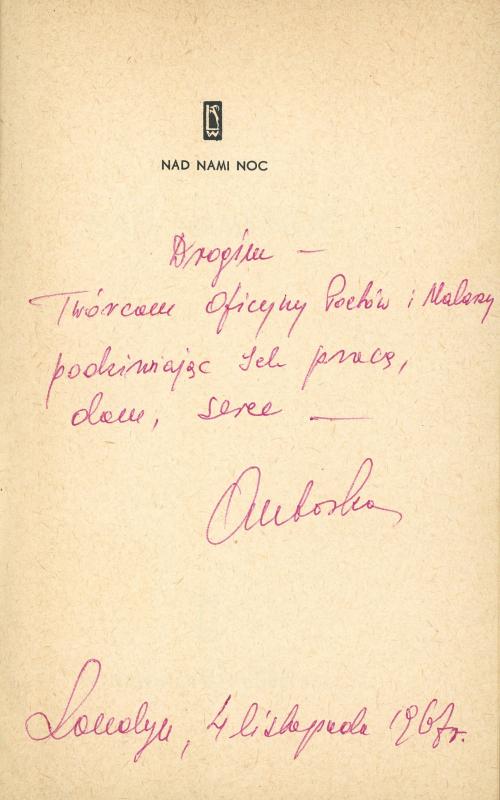 LSW
NAD NAMI NOC
Drogim —
Twórcom Oficyny Poetów i Malarzy
podziwiając Ich pracę,
dom, serce —
Londyn, 4 listopada 1967 r.